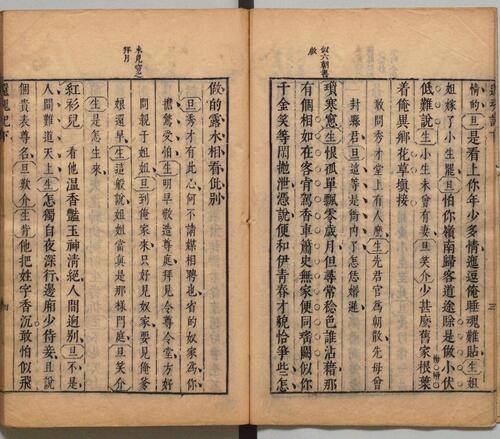 似六朝書
啟
情的旦是看上你年少多情邐逗俺睡魂難貼生姐
姐嫁了小生罷旦怕你嶺南歸客道途賒是做小伏
低難說生小生未曾有妻旦笑介少甚麼舊家根葉
着俺異鄉花草填接
敢問秀才堂上有人麽生先君官爲朝散先母曾
封縣君旦這等是衙内了怎恁婚遲
瑣寒窻生恨孤單飄零歲月但尋常稔色誰沾藉那
有個相如在客肯駕香車蕭史無家便同瑤闕似你
千金笑等閒抛泄憑說便和伊青春才貌恰爭些怎
拜月
做的露水相看仳別
旦秀才有此心何不請媒相聘也省的奴家爲你
擔驚受怕生明早敢造尊庭拜見令尊令堂方好
問親于姐姐旦到俺家來只好見奴家要見俺爹
娘還早生這般說姐姐當眞是那樣門庭旦笑介
生是怎生來
紅衫兒 看他温香艷玉神清絶人間逈別旦不是
人間難道天上生怎獨自夜深行邊廂少侍妾且說
個貴表尊名旦歎介生背他把姓字香沉敢怕似飛
還魂記下 四